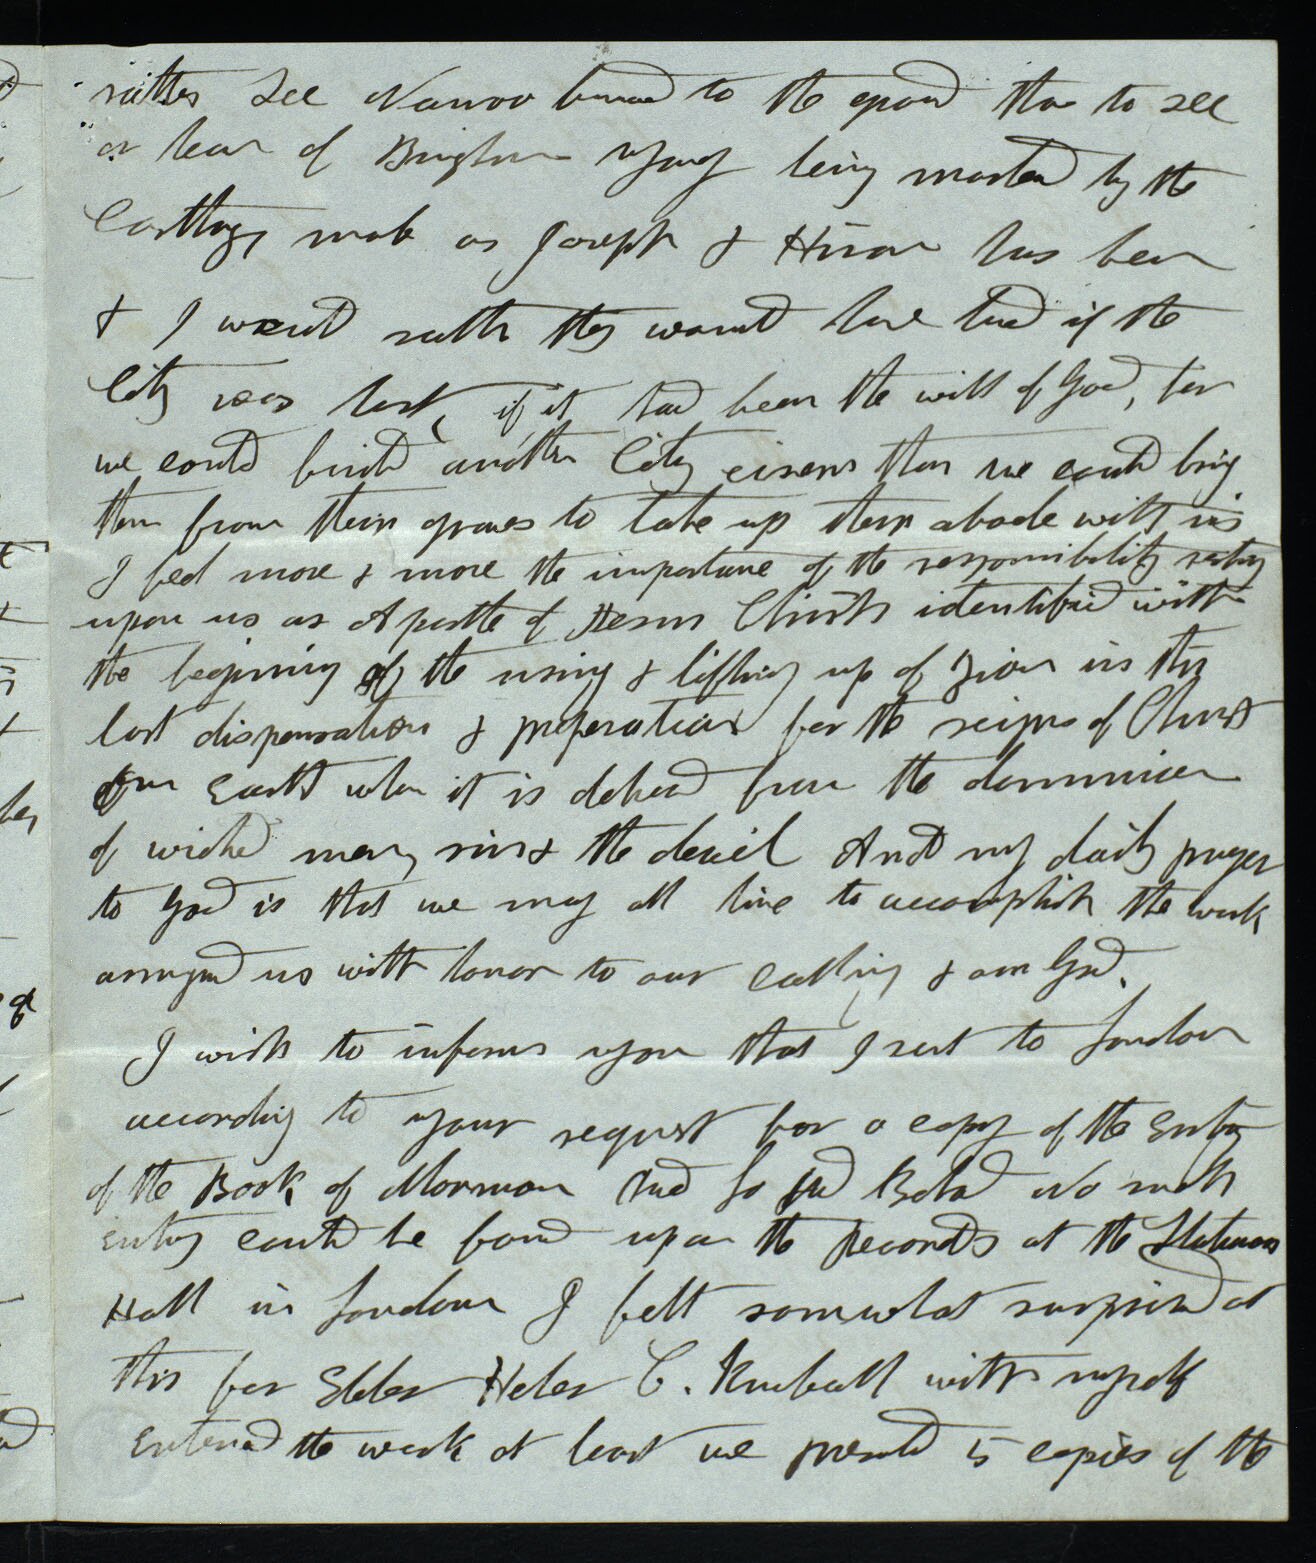 rather see Nauvoo burned to the ground than to see
or hear of Brigham Young being marterd by the
Carthage mob as Joseph & Hiram has been
& I would rather they would have lived if the
City was lost, if it had been the will of God, for
we could build another City eisier than we could bring
them from their graves to take up their abode with us
I feel more & more the importance of the responsibility resting
upon us as Apostle of Jesus Christ identified with
the begining of the rising & lifting up of Zion in this
last dispensation & preperation for the reign of Christ
on Earth when it is deliverd from the dominion
of wicked men, sin & the devil And my daily prayer
to God is that we may all live to accomplish the work
assignd us with honor to our calling & our God.
I wish to inform you that I sent to London
according to your request for a copy of the Entry
of the Book of Mormon And lo and Behold No such
entry could be found upon the Records at the Stationers
Hall in London I felt somwhat surprised at
this for Elder Heber C. Kimball with myself
entered the work at least we presented 5 copies of the